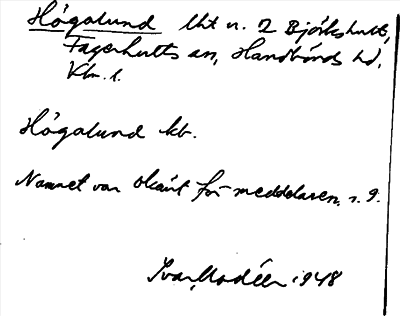 Högalund lht u. 2 Björkshult,
Fagerhults sn, Handbörds hd,
Klm. l.
Högalund kb.
Namnet var okänt för meddelaren. n. 9.
Ivar Modéer 1948